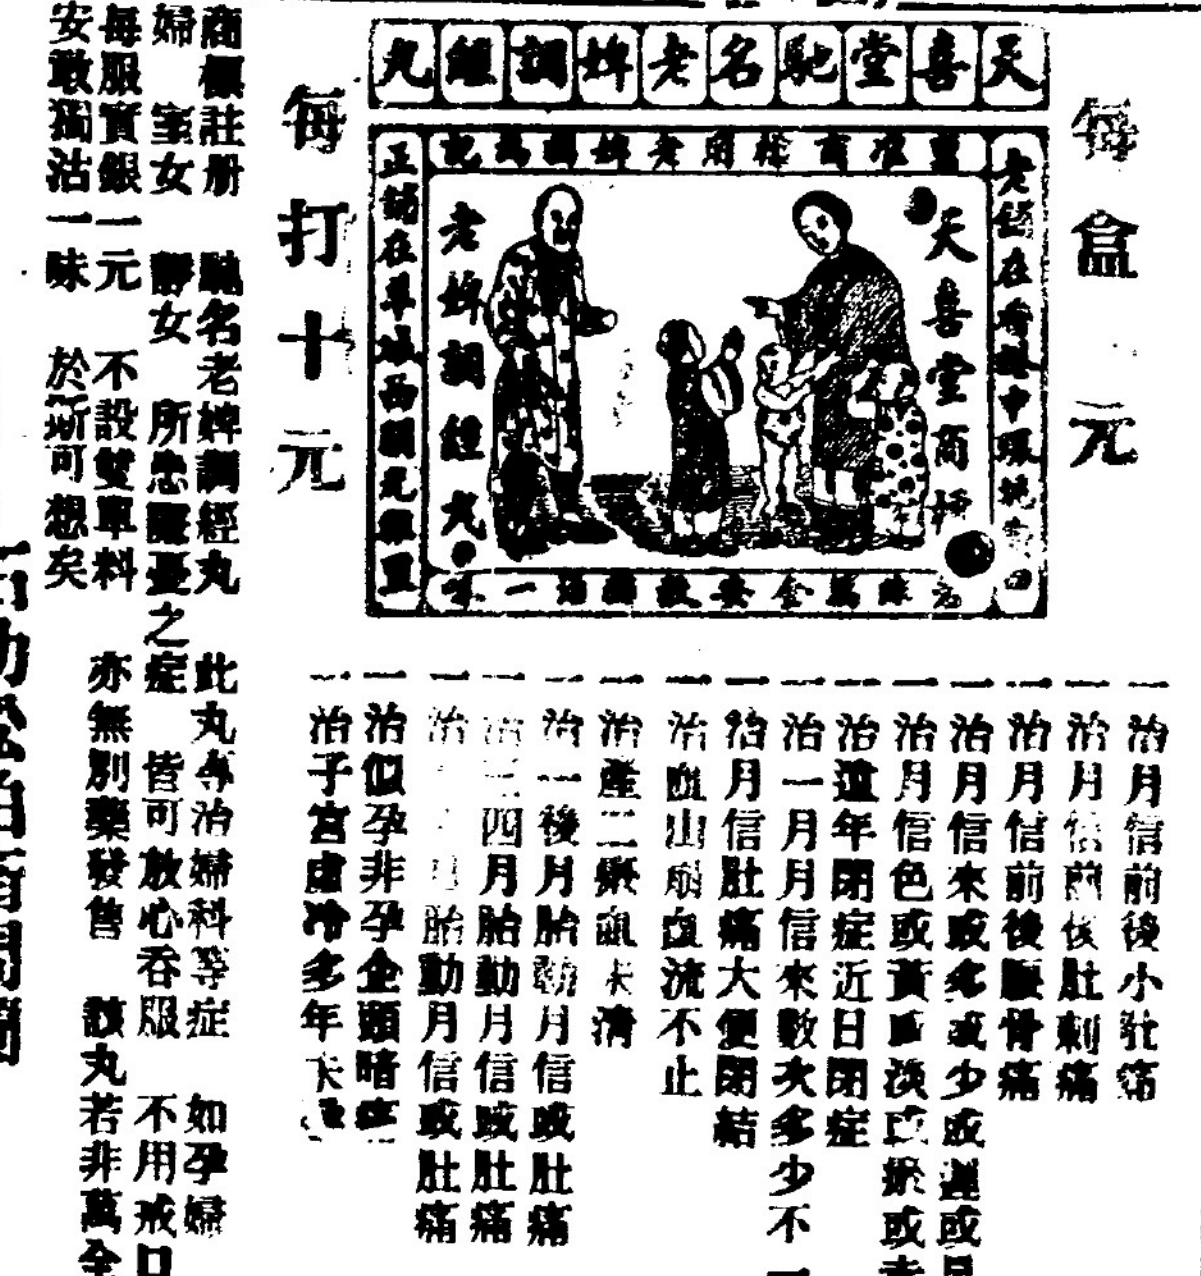 天喜堂馳名老婢調經丸
每盒 元
老舖在香港中環
用老婢調為記
正舖在羊城西關 里
天喜堂商標
老婢調經丸
萬金安敢獨沽一味
每打十元
一治月信前後小肚痛
一治月信前後肚刺痛
一治月信前後腰骨痛
一治月信來或多或少或遲或
一治月信色或黃或淡或瘀或
一治遠年閉症近日閉症
一治一月月信來數次多少不一
一治月信肚痛大便閉結
一治血山崩血流不止
一治產二 血未清
一治一後月胎動月信或肚痛
一治三四月胎動月信或肚痛
一治 月胎動月信或肚痛
一治似孕非孕企頭暗
一治子宮虛冷多年未
商標註册 馳名老婢調經丸 此丸專治婦科等症 如孕婦
婦 室女 靜女 所患 憂之症 皆可放心吞服 不用戒口
每服實銀一元 不設雙單料 亦無別藥發售 該丸若非萬全
安敢獨沽一味 於斯可想矣